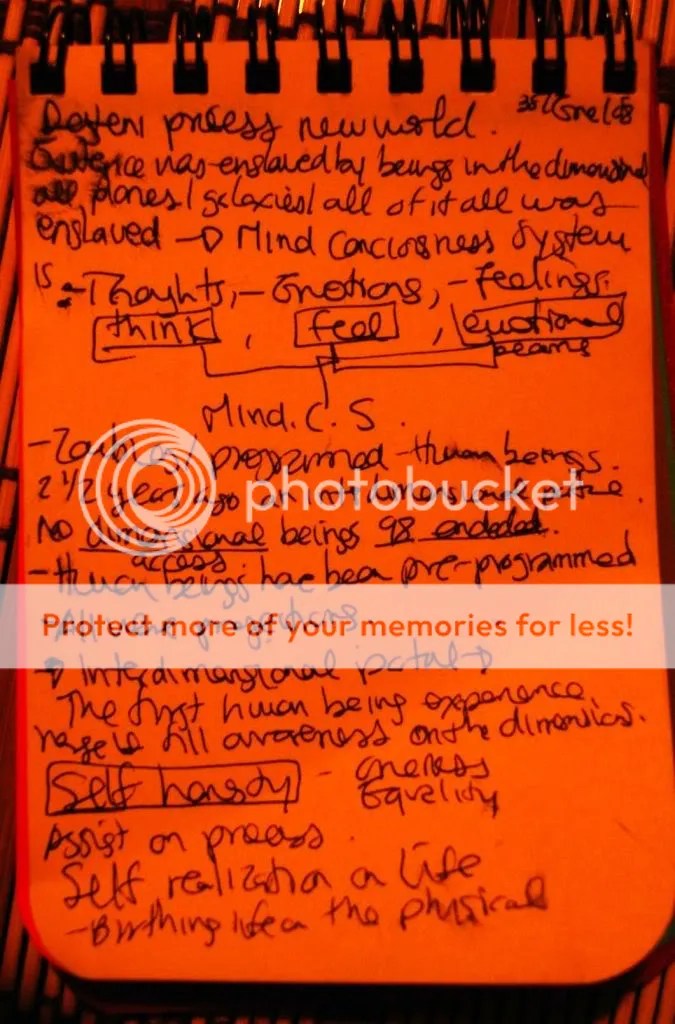 process new world.
was enslaved by beings in the dimensions
all planes / galaxies / all of it all was
enslaved → Mind Conciousness System
is :- Thoughts, - Emotions, - Feelings.
think, feel, emotional
beams
Mind. C. S.
programmed - Human beings.
2 1/2 years ago an
No dimensional beings 98 ended.
access
- Human beings has been pre-programmed
photobucket
Protect more of your memories for less!
→ Interdimensional portal →
The first human being experience
full awareness on the dimensions.
Self honsty - oneness
Equality
Assist on process.
Self realization on Life
- Birthing life on the physical